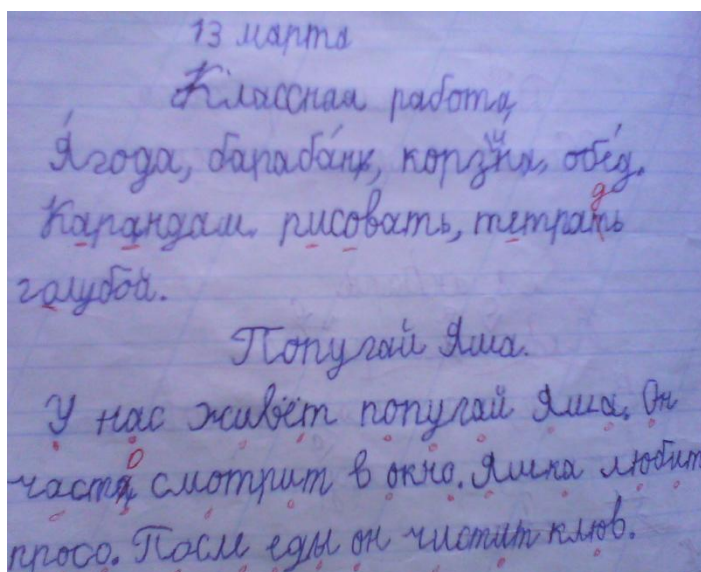 13 марта
Классная работа
Я́года, бараба́н, корзи́на, обе́д.
Карандаш. рисовать, тетрадь
голубой.
Попугай Яша.
У нас живёт попугай Яша. Он
часто смотрит в окно. Яшка любит
просо. После еды он чистит клюв.